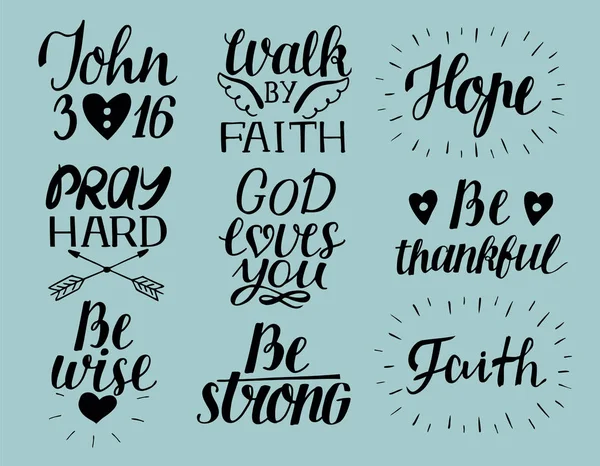 John
3:16
Walk
BY
FAITH
Hope
PRAY
HARD
GOD
loves
you
Be
thankful
Be
wise
Be
strong
Faith